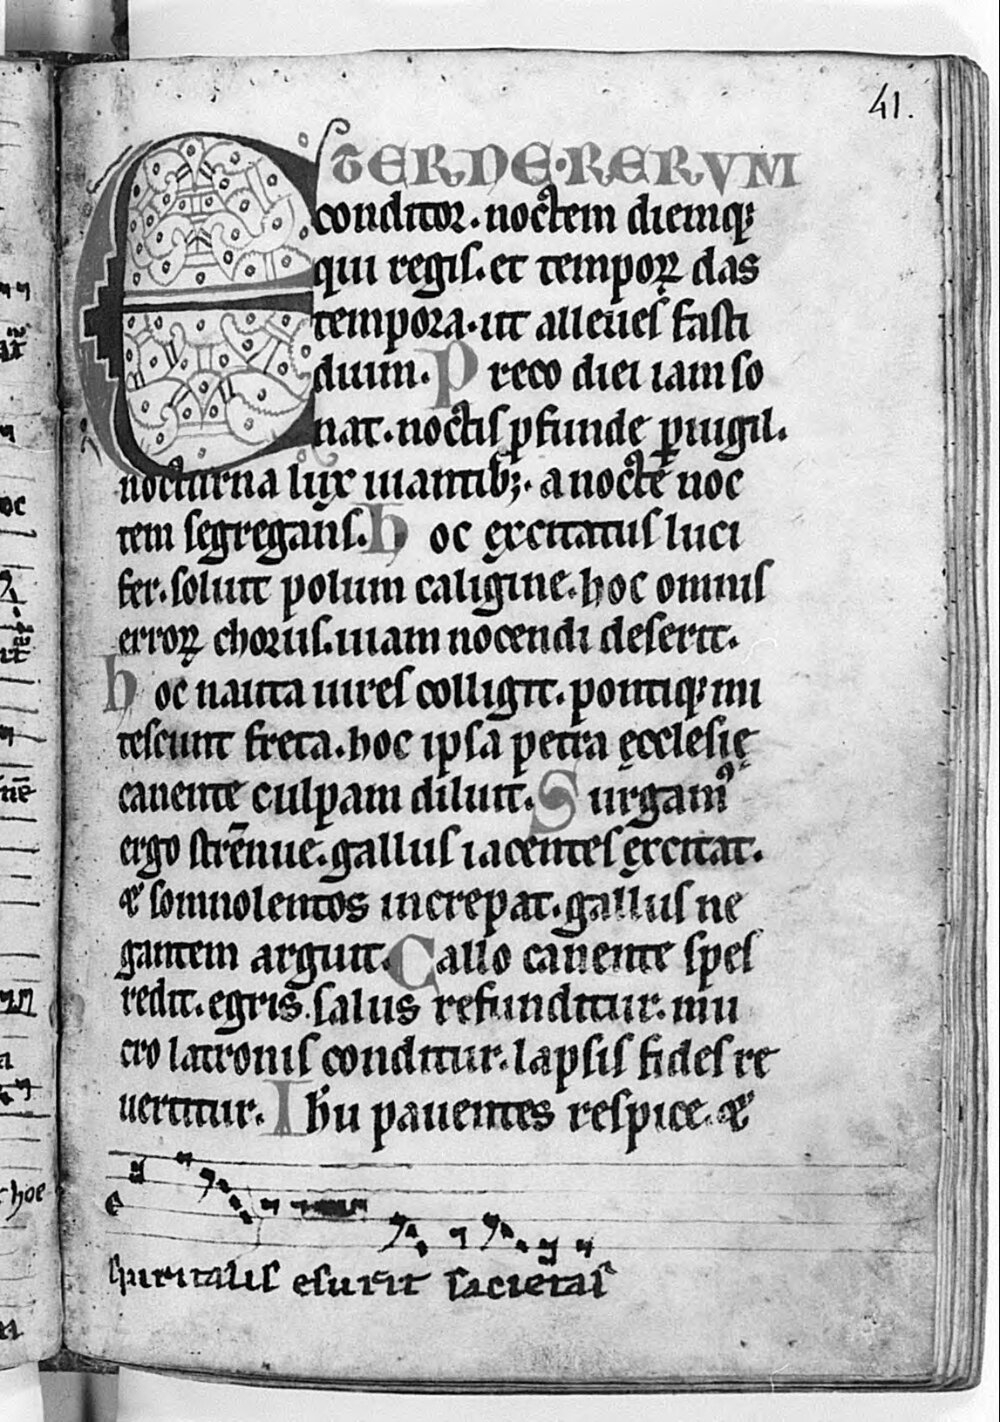 41.
ETERNE·RERVM
conditor. noctem diemq;
qui regis. et temporꝝ das
tempora. ut alleues fasti
dium. Preco diei iam so
nat. noctis ꝓfunde ꝑuigil.
nocturna lux uiantib;. a nocte noc
tem segregans. Hoc excitatus luci
fer. soluit polum caligine. hoc omnis
errorꝝ chorus. uiam nocendi deserit.
Hoc nauta uires colligit. pontiq; mi
tescunt freta. hoc ipsa petra ęcclesię
canente culpam diluit. Surgamꝰ
ergo strēnue. gallus iacentes excitat.
& somnolentos increpat. gallus ne
gantem arguit. Gallo canente spes
redit. egris salus refunditur. mu
cro latronis conditur. lapsis fides re
uertitur. Ihū pauentes respice. &
e
spiritalis esurit sacietas